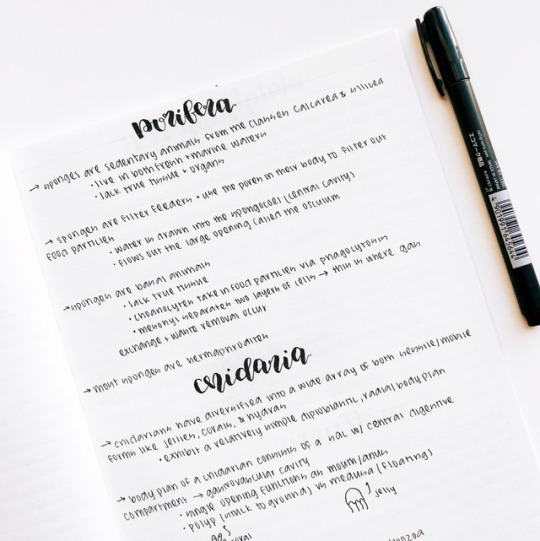 porifera
→ sponges are sedentary animals from the classes calcarea & silicea
• live in both fresh + marine waters
• lack true tissue + organs
→ sponges are filter feeders • use the pores in their body to filter out
food particles
• water is drawn into the spongocoel (central cavity)
• flows out the large opening called the osculum
→ sponges are basal animals
• lack true tissue
• choanocytes take in food particles via phagocytosis
• mesohyl separates two layers of cells → this is where gas
exchange + waste removal occur
→ most sponges are hermaphrodites
cnidaria
→ cnidarians have diversified into a wide array of both sessile/mobile
forms like jellies, corals, & hydras
• exhibit a relatively simple diploblastic, radial body plan
→ body plan of a cnidarian consists of a sac w/ central digestive
compartment → gastrovascular cavity
• single opening functions as mouth/anus
• polyp (stuck to ground) vs medusa (floating)
jelly
coral